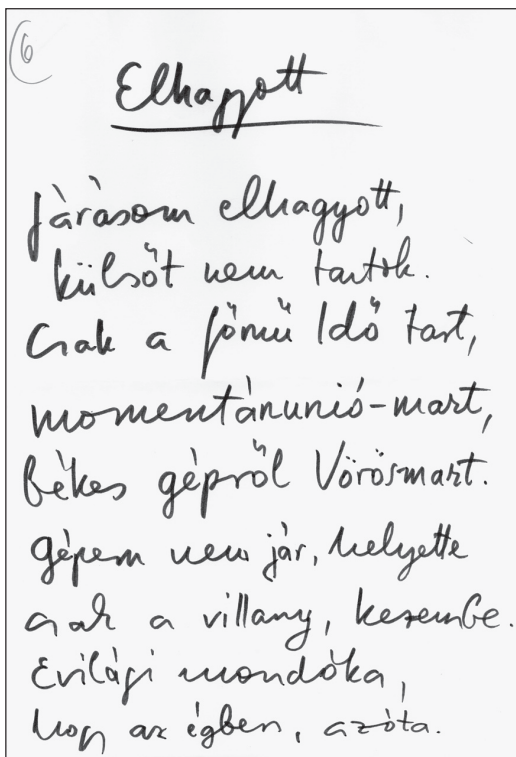 6
Elhagyott
Járásom elhagyott,
külsőt nem tartok.
Csak a főmű Idő tart,
momentánunió-mart,
békés gépről Vörösmart.
Gépem nem jár, helyette
csak a villany, kezembe.
Evilági mondóka,
hogy az égben, azóta.